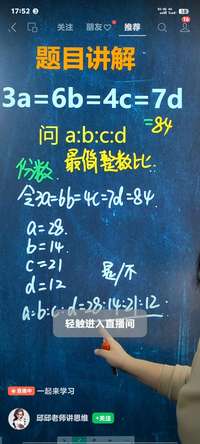 17:52
关注
朋友♡
推荐
16
题目讲解
3a=6b=4c=7d
=84
问 a:b:c:d
份数
最简整数比.
令3a=6b=4c=7d=84.
a=28.
b=14.
c=21
d=12
是/不
a:b:c:d=28:14:21:12.
轻触进入直播间
直播中
一起来学习
邱邱老师讲思维
+关注